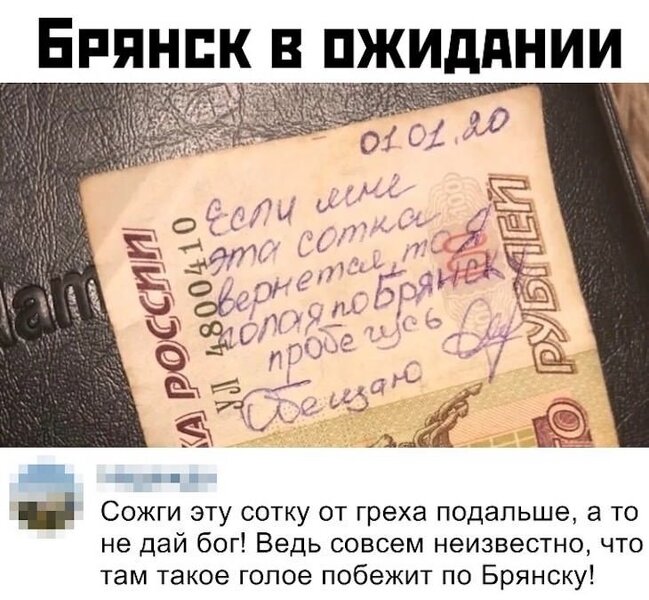 БРЯНСК В ОЖИДАНИИ
01.01.20
Если мне
эта сотка
вернется, то я
голая по Брянску
пробегусь
Обещаю
КА РОССИИ
УЛ 4800410
РУБЛЕЙ
ТО
am
Сожги эту сотку от греха подальше, а то
не дай бог! Ведь совсем неизвестно, что
там такое голое побежит по Брянску!